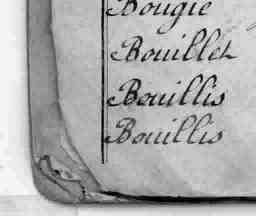 Bougie
Bouillet
Bouillis
Bouillis